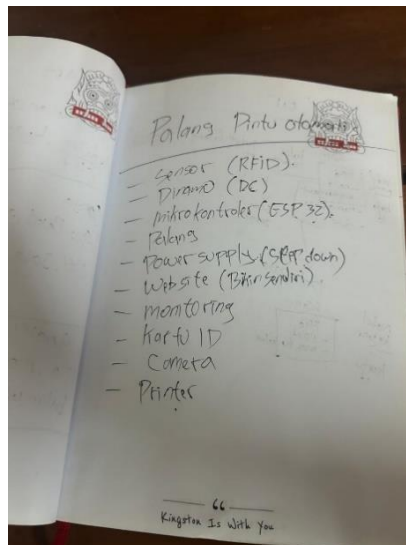 Palang Pintu otomatis
- Sensor (RFiD).
- Dinamo (DC)
- mikrokontroler (ESP 32).
- Palang
- Power supply (Step down)
- Website (Bikin sendiri).
- monitoring
- Kartu ID
- Camera
- Printer
66
Kingston Is With You